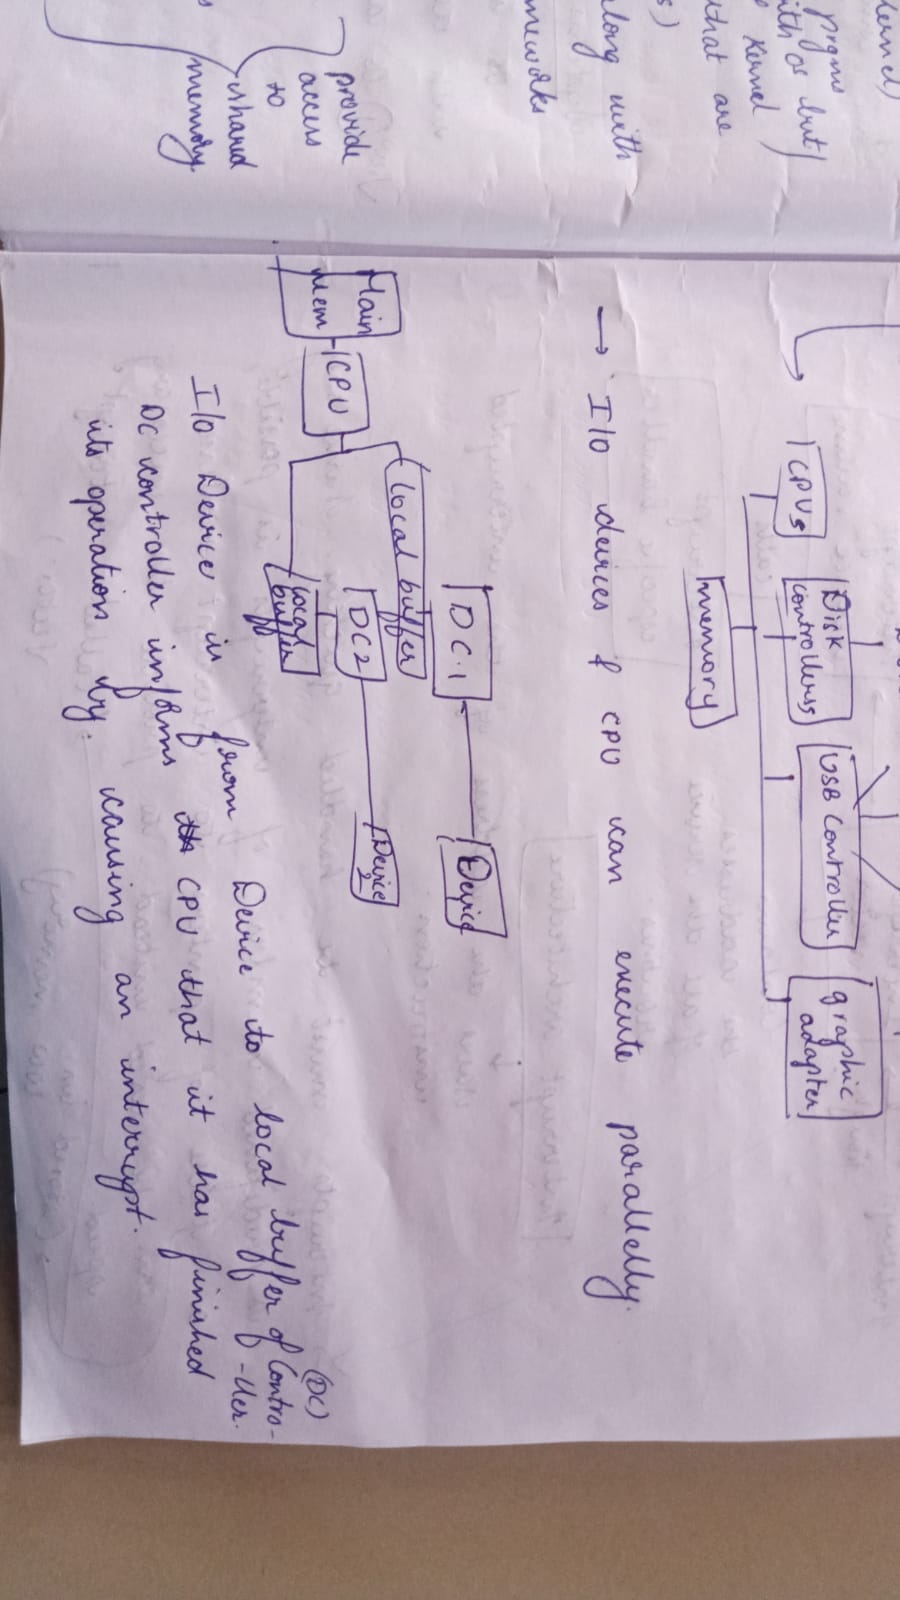 Kernel)
prgms
ith OS but
Kernel
that are
s)
along with
meworks
provide
access
to
shared
memory.
CPUs
Disk
controllerss
USB Controller
graphic
adapter
memory
→ I/O devices & CPU can execute parallelly.
DC.1
Device
local buffer
DC2
Device
2
Main
Mem
CPU
local
buffer
(DC)
I/O Device is from Device to local buffer of Contro-
-ller.
DC controller informs CPU that it has finished
its operation by. causing an interrupt.